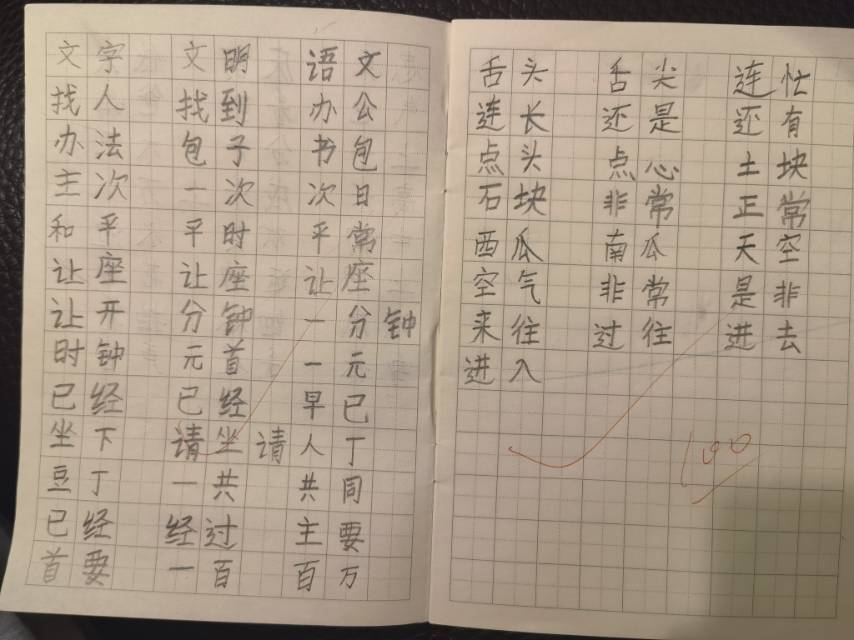 文字 文明 语文
找人 找到 办公
办法 包子 书包
主次 一次 次日
和平 平时 平常
让座 让座 让座
让开 分钟 一分钟
时钟 元首 一元
已经 已经 早已
坐下 请坐 请人
豆丁 一共 共同
已经 经过 主要
首要 一百 百万
舌头 舌尖 连忙
连长 还是 还有
点头 点心 土块
石块 非常 正常
西瓜 南瓜 天空
空气 非常 是非
来往 过往 进去
进入
100